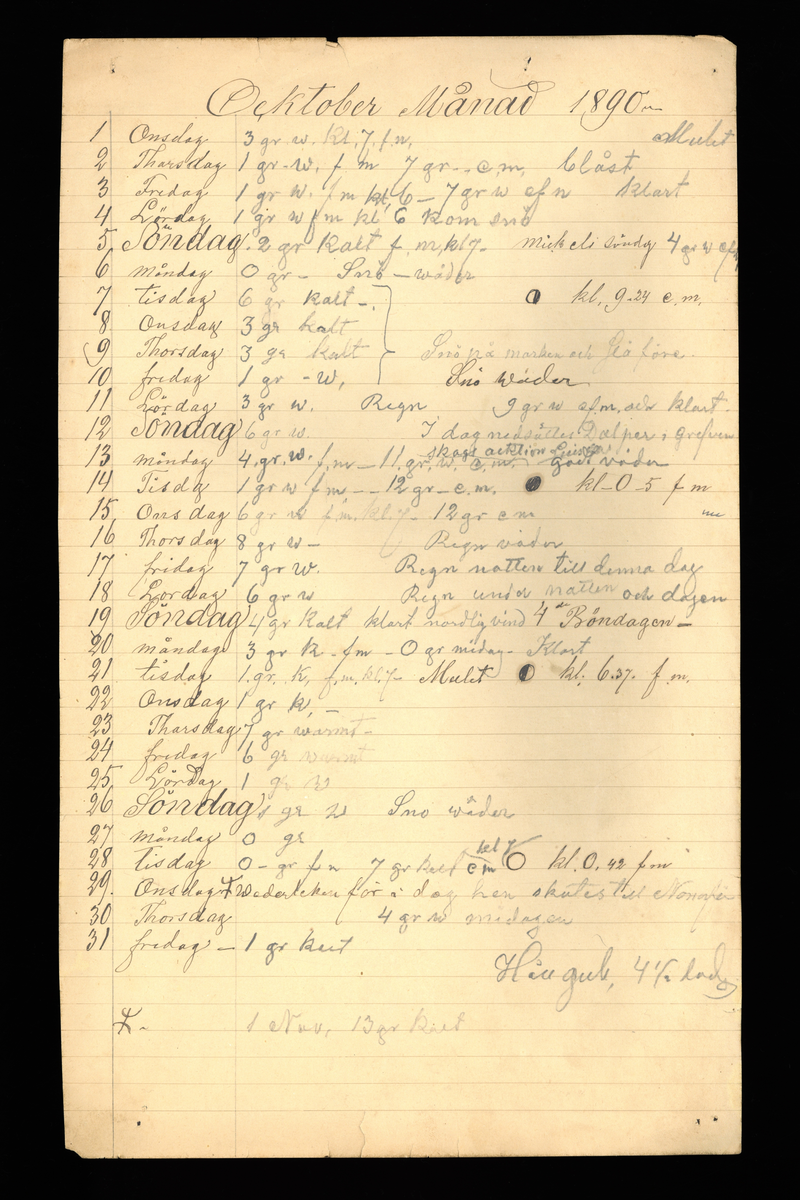 Ocktober Månad 1890
1 Onsdag 3 gr w. kl. 7. f.n. Mulet
2 Tharsdag 1 gr - w. f m 7 gr - - e.m. blåst
3 Fredag 1 gr w. f m kl. 6 - 7 gr w ef n klart
4 Lördag 1 gr w f m kl 6 kom snö
5 Söndag. 2 gr kalt f. m, kl 7- Mickeli söndg 4 gr w efm
6 måndag 0 gr - Snö - wäder
7 tisdag 6 gr kalt - kl. 9-24 e.m.
8 Onsdag 3 gr kalt
9 Thorsdag 3 gr kalt Snö på marken och före.
10 fredag 1 gr - w, Snö wäder
11 Lördag 3 gr w. Regn 9 gr w efm. och klart.
12 Söndag 6 gr w. I dag nedsattes i grefven
skogs aucktion
13 måndag 4. gr. w. f. m - 11. gr. w. e.m. godt väder
14 Tisdg 1 gr w f m - - 12 gr - e.m. kl - 0 - 5 f m
15 Onsdag 6 gr w f.m. kl. 7- 12 gr em
16 Thorsdag 8 gr w - Regn väder
17 friday 7 gr w. Regn natten till denna dag
18 Lordag 6 gr w Regn under natten och dagen
19 Söndag 4 gr kalt klart nordlig vind 4de Böndagen -
20 måndag 3 gr k - f m - 0 gr midag - Klart
21 tisdag 1. gr. K, f.m. kl 7- Mulet kl. 6.37. f m.
22 Onsdag 1 gr k, -
23 Tharsdag 7 gr warmt -
24 fredag 6 gr warmt
25 Lördag 1 gr w
26 Söndag gr w Sno wäder
27 måndag 0 gr
kl 7
28 tisdag 0 - gr f n 7 gr kalt em kl. 0. 42 f m
29. Onsdag för i dag hen skutes till
30 Thorsdag 4 gr w midagen
31 fredag - 1 gr kalt
4 1/2
1 Nov, 13 gr kalt